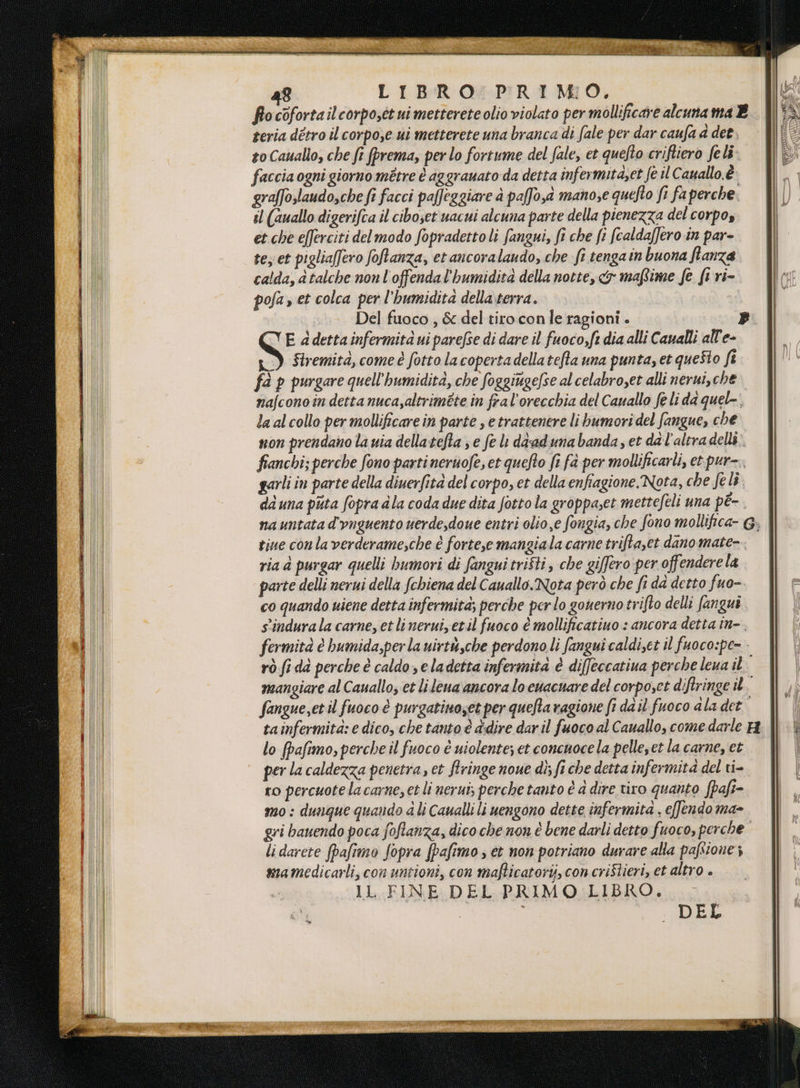 48 LIBRO PRIMO.
sto cõforta il corpo, et ui metterete olio violato per mollificare alcuna ma E
teria dẽtro il corpo, e ui metterete una branca di sale per dar causa à det
to Cauallo, che si sprema, per lo fortume del sale, et questo cristiero se li
faccia ogni giorno mẽtre è aggrauato da detta infermità, et se il Cauallo è
grasso, laudo, che si facci passeggiare à passo, à mano, e questo si fa perche
il Cauallo digerisca il cibo, et uacui alcuna parte della pienezza del corpo,
et che esserciti del modo sopradetto li sangui, si che si scaldassero in par-
te, et pigliassero sostanza, et ancora laudo, che si tenga in buona stanza
calda, à talche non l'offenda l'humidità della notte, & massime se si ri-
posa, et colca per l'humidità della terra.
Del fuoco, & del tiro con le ragioni. F
SE à detta infermità ui paresse di dare il fuoco, si dia alli Caualli all'e-
stremità, come è sotto la coperta della testa una punta, et questo si
fà p purgare quell'humidità, che soggiũgesse al celabro, et alli nerui, che
nascono in detta nuca, altrimẽte in fra l'orecchia del Cauallo se li dà quel-
la al collo per mollificare in parte, e trattenere li humori del sangue, che
non prendano la uia della testa, e se li dà ad una banda, et dà l'altra delli
fianchi; perche sono parti neruose, et questo si fà per mollificarli, et pur-
garli in parte della diuersità del corpo, et della enfiagione. Nota, che se li
dà una pũta sopra à la coda due dita sotto la groppa, et metteseli una pẽ-
na untata d'vnguento uerde, doue entri olio, e songia, che sono mollifica- G
tiue con la verderame, che è forte, e mangia la carne trista, et dano mate-
ria à purgar quelli humori di sangui tristi, che gissero per offendere la
parte delli nerui della schiena del Cauallo. Nota però che si dà detto fuo-
co quando uiene detta infermità; perche per lo gouerno tristo delli sangui
s'indura la carne, et li nerui, et il fuoco è mollificatiuo: ancora detta in-
fermità è humida, per la uirtù, che perdono li sangui caldi, et il fuoco: pe-
rò si dà perche è caldo, e la detta infermità è disseccatiua perche leua il
mangiare al Cauallo, et li leua ancora lo euacuare del corpo, et distringe il
sangue, et il fuoco è purgatiuo, et per questa ragione si dà il fuoco à la det
ta infermità: e dico, che tanto è à dire dar il fuoco al Cauallo, come darle H
lo spasimo, perche il fuoco è uiolente; et concuoce la pelle, et la carne, et
per la caldezza penetra, et stringe noue dì; si che detta infermità del ti-
ro percuote la carne, et li nerui; perche tanto è à dire tiro quanto spasi-
mo: dunque quando à li Caualli li uengono dette infermità, essendo ma-
gri hauendo poca sostanza, dico che non è bene darli detto fuoco, perche
li darete spasimo sopra spasimo, et non potriano durare alla passione;
ma medicarli, con untioni, con masticatorij, con cristieri, et altro.
IL FINE DEL PRIMO LIBRO.
DEL